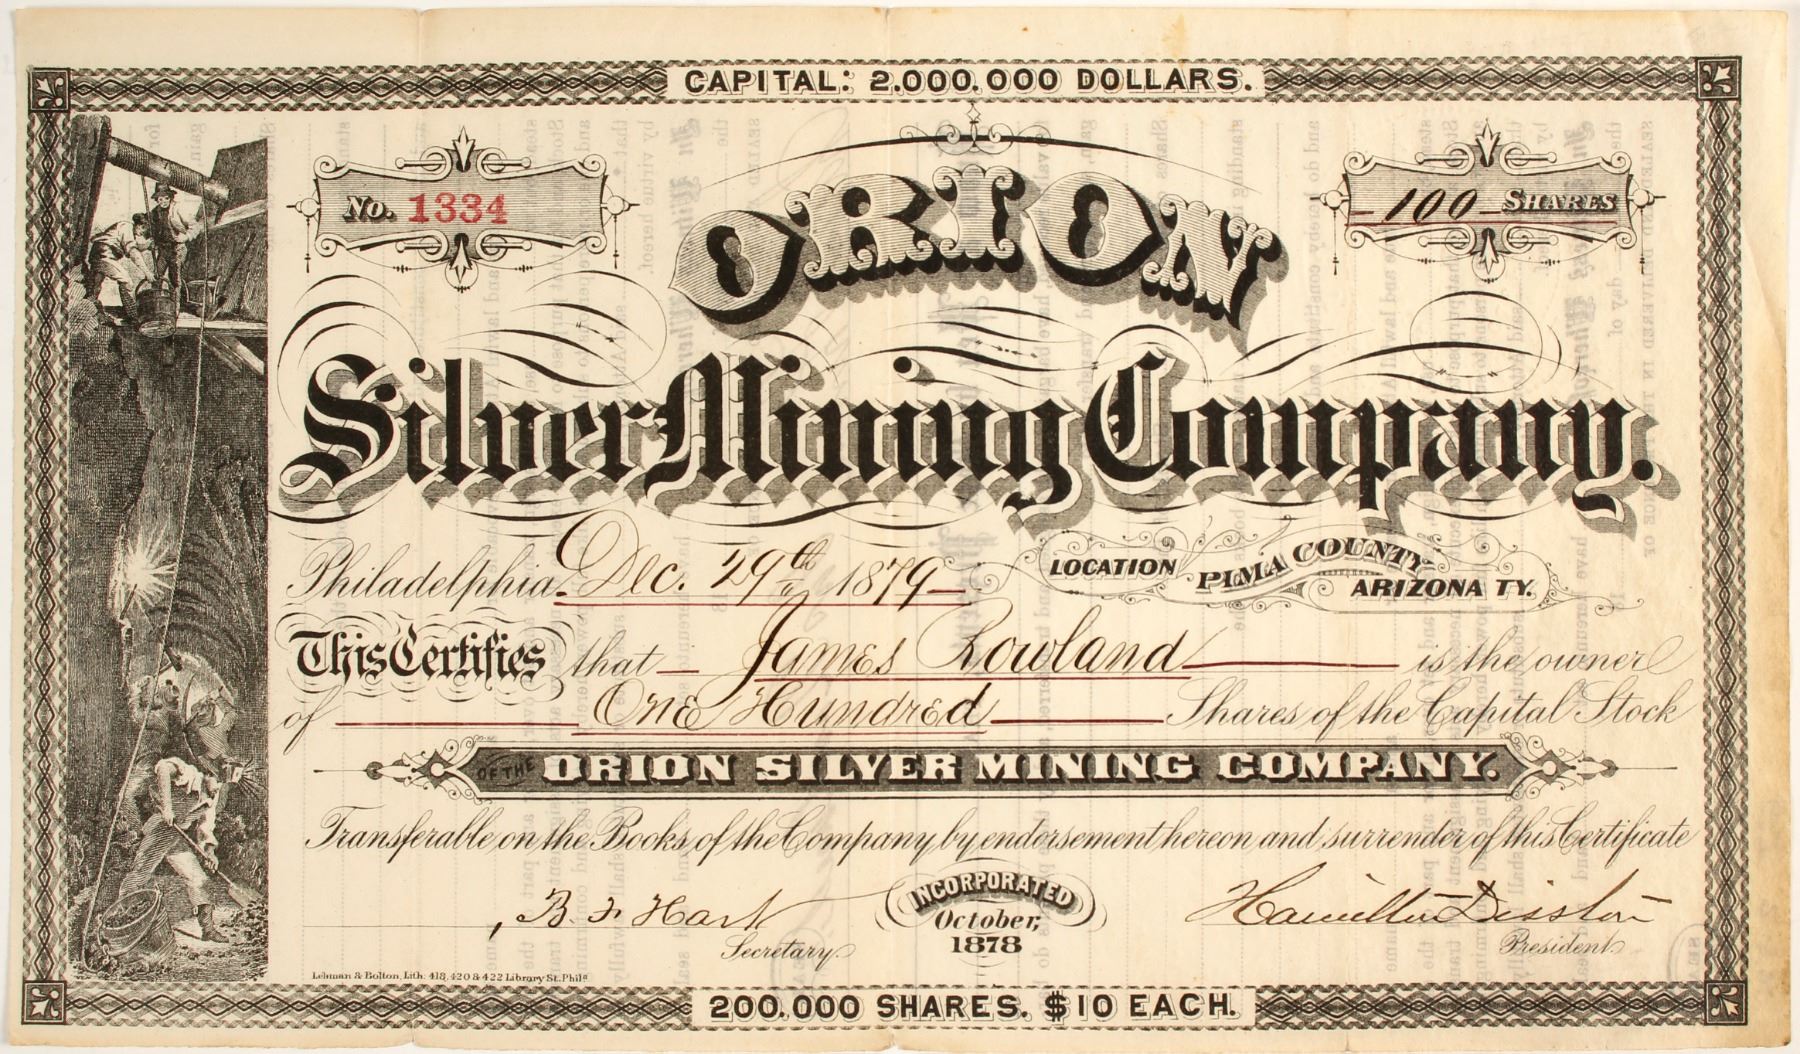 CAPITAL: 2.000.000 DOLLARS.
No. 1334
100 SHARES
ORION
Silver Mining Company.
Philadelphia. Dec. 29th 1879
LOCATION PIMA COUNTY
ARIZONA TY.
This Certifies that James Rowland is the owner
of One Hundred Shares of the Capital Stock
OF THE ORION SILVER MINING COMPANY.
Transferable on the Books of the Company by endorsement hereon and surrender of this Certificate
B. F. Hart
Secretary
INCORPORATED
October,
1878
Hamilton Disston
President
Lehman & Bolton, Lith. 418, 420 & 422 Library St. Phila
200.000 SHARES. $10 EACH.